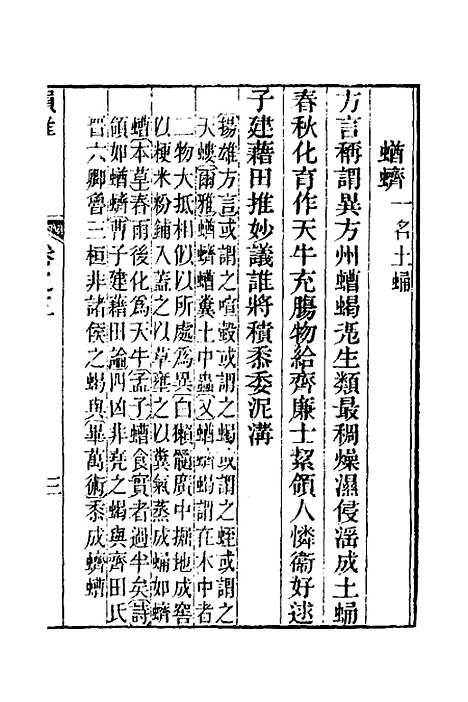 蝤蠐一名土蛹
方言稱謂異方州螬蝎殼生類最稠燥濕侵滛成土蛹
春秋化育作天牛充腸物給齊廉士絜領人憐衞好逑
子建藉田推妙議誰將積黍委泥溝
揚雄方言或謂之喧轂或謂之蝎或謂之蛭或謂之
天螻爾雅蟦蠐螬糞土中蟲又蝤蠐蝎謂在木中者
二物大抵相似以所處爲異白獺髓廣中掘地成窖
以粳米粉鋪入葢之以草壅之以糞氣蒸成蛹如蠐
螬本草春雨後化爲天牛孟子螬食實者過半矣詩
領如蝤蠐曹子建藉田論四凶非堯之蝎與齊田氏
晉六卿魯三桓非諸侯之蝎與畢萬術黍成蠐螬
卷之
三